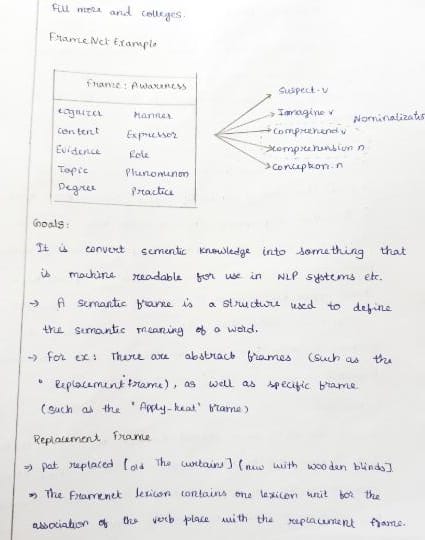 Fill more and colleges.
FrameNet Example
Frame: Awareness
Cognizer Manner
Content Expressor
Evidence Role
Topic Phenomenon
Degree Practice
Suspect.v
Imagine v
Nominalizatio
Comprehend v
Comprehension n
Conception.n
Goals:
It is convert sementic knowledge into something that
is machine readable for use in NLP systems etc.
→ A semantic frame is a structure used to define
the semantic meaning of a word.
→ For ex: There are abstract frames (such as the
" Replacement" frame), as well as specific frame
(such as the 'Apply-heat' frame)
Replacement Frame
⇒ pat replaced [old The curtains] (new with wooden blinds]
⇒ The Framenet lexicon contains one lexicon unit for the
association of the verb place with the replacement frame.